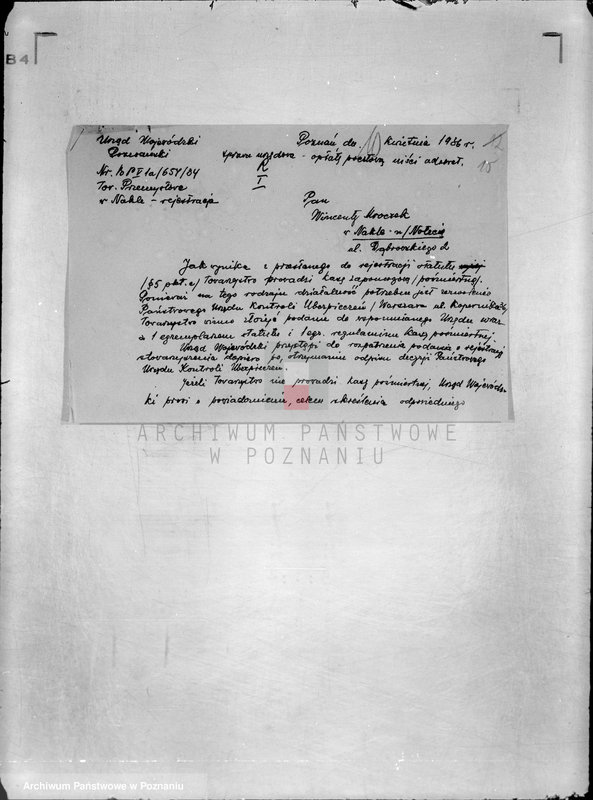 B4
Urząd Wojewódzki
Poznański
Poznań dn. 10 kwietnia 1936 r.
sprawa urzędowa - opłatę pocztową uiści adresat.
15
Nr. BPV 1a/657/34
R
I
Tow. Przemysłowe
w Nakle - rejestracja
Pan
Wincenty Mroczek
w Nakle - n/Notecią
ul. Dąbrowskiego 2
Jak wynika z przesłanego do rejestracji statutu
/§5 pkt. e/ Towarzystwo prowadzi kasę zapomogową /pośmiertną/.
Ponieważ na tego rodzaju działalność potrzebne jest zezwolenie
Państwowego Urzędu Kontroli Ubezpieczeń /Warszawa ul. Kopernika
Towarzystwo winno złożyć podanie do wspomnianego Urzędu wraz
z 1 egzemplarzem statutu i 1 egz. regulaminu kasy pośmiertnej.
Urząd Wojewódzki przystąpi do rozpatrzenia podania o rejestrację
stowarzyszenia dopiero po otrzymaniu odpisu decyzji Państwowego
Urzędu Kontroli Ubezpieczeń.
Jeżeli Towarzystwo nie prowadzi kasy pośmiertnej, Urząd Wojewódz-
ki prosi o powiadomienie, celem skreślenia odpowiedniego
ARCHIWUM PAŃSTWOWE
W POZNANIU
Archiwum Państwowe w Poznaniu